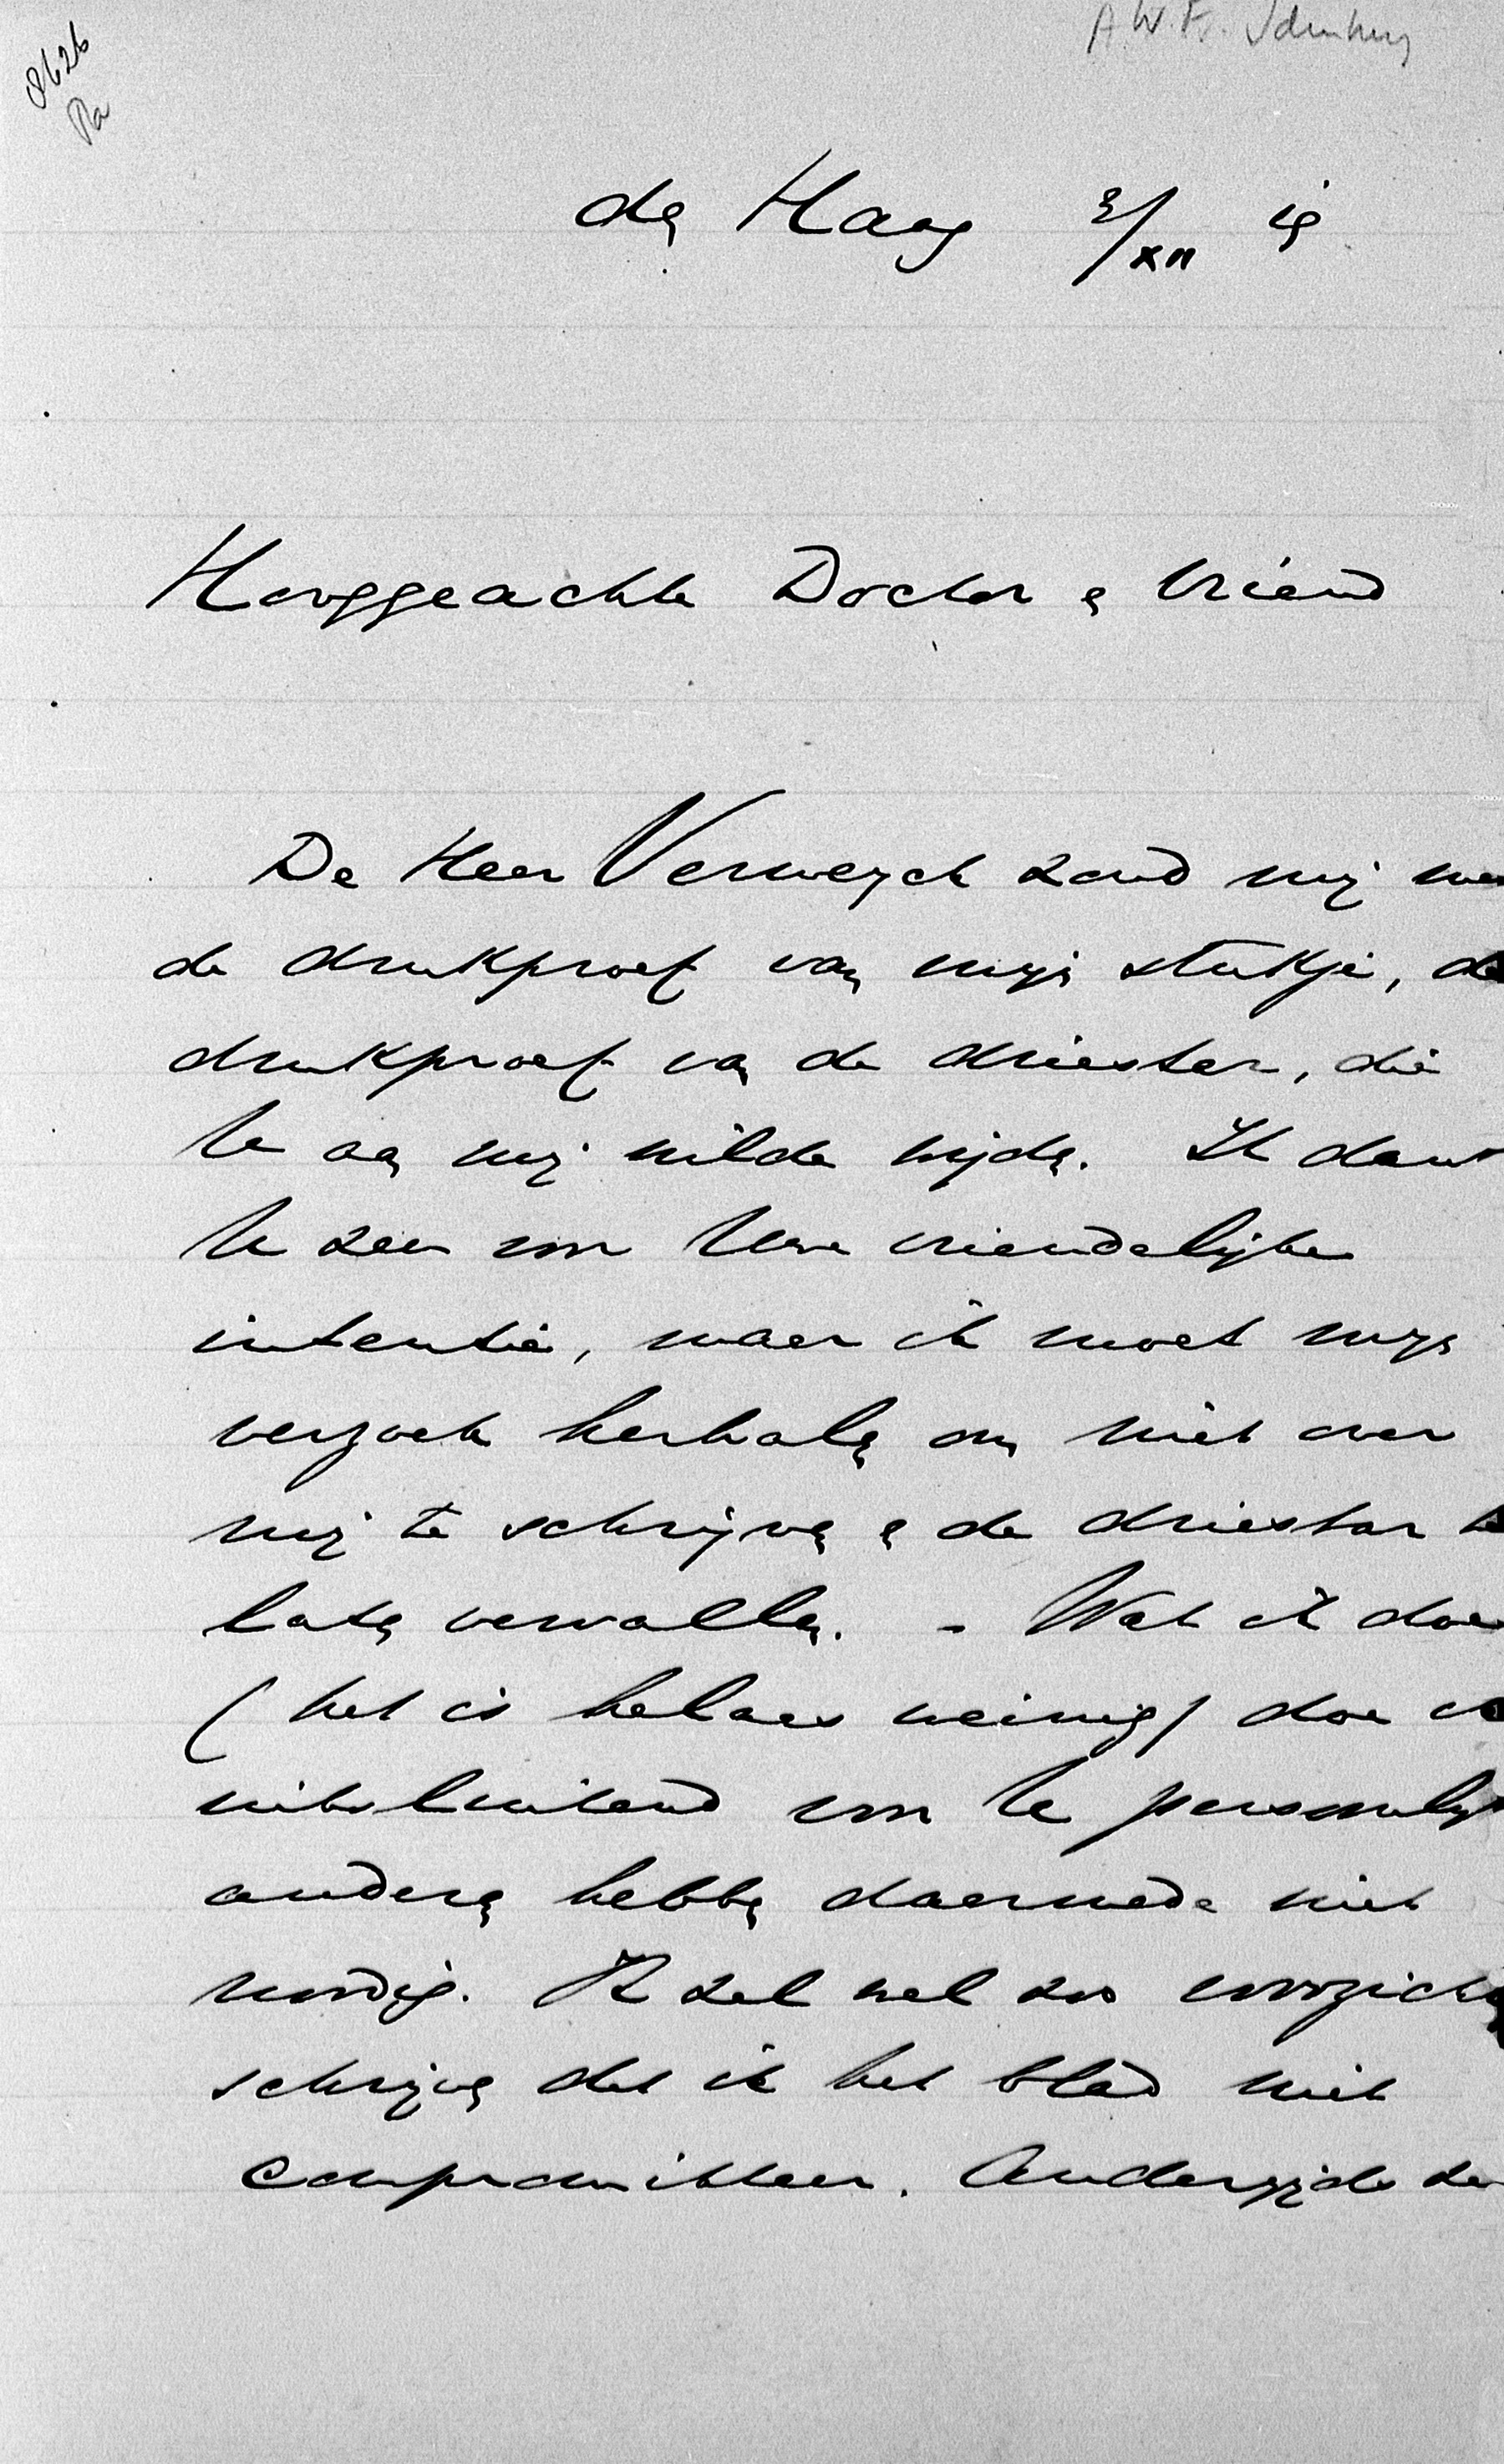 8626
Ra
A.W.F. Idenburg
den Haag 2/XII 19
Hooggeachte Doctor en Vriend
De Heer Verweyck zond mij me
de drukproef van mijn stukje, de
drukproef van de driestar, die
U aan mij wilde wijden. Ik dank
U zeer voor Uwe vriendelijke
intentie, maar ik moet mijn
verzoek herhalen om niet over
mij te schrijven en de driestar te
laten vervallen. - Wat ik doe
(het is helaas weinig) doe ik
uitsluitend voor U persoonlijk
anderen hebben daarmede niet
noodig. Ik zal wel zoo voorzicht
schrijven dat ik het blad niet
compromitteer. Anderzijds